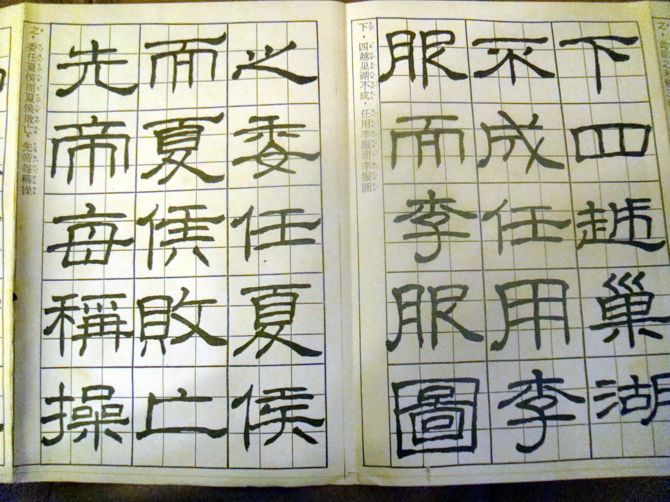 下四越巢湖
不成任用李
服而李服圖
下，四越巢湖不成，任用李服而李服圖
之委任夏侯
而夏侯敗亡
先帝每稱操
之，委任夏侯而夏侯敗亡，先帝每稱操